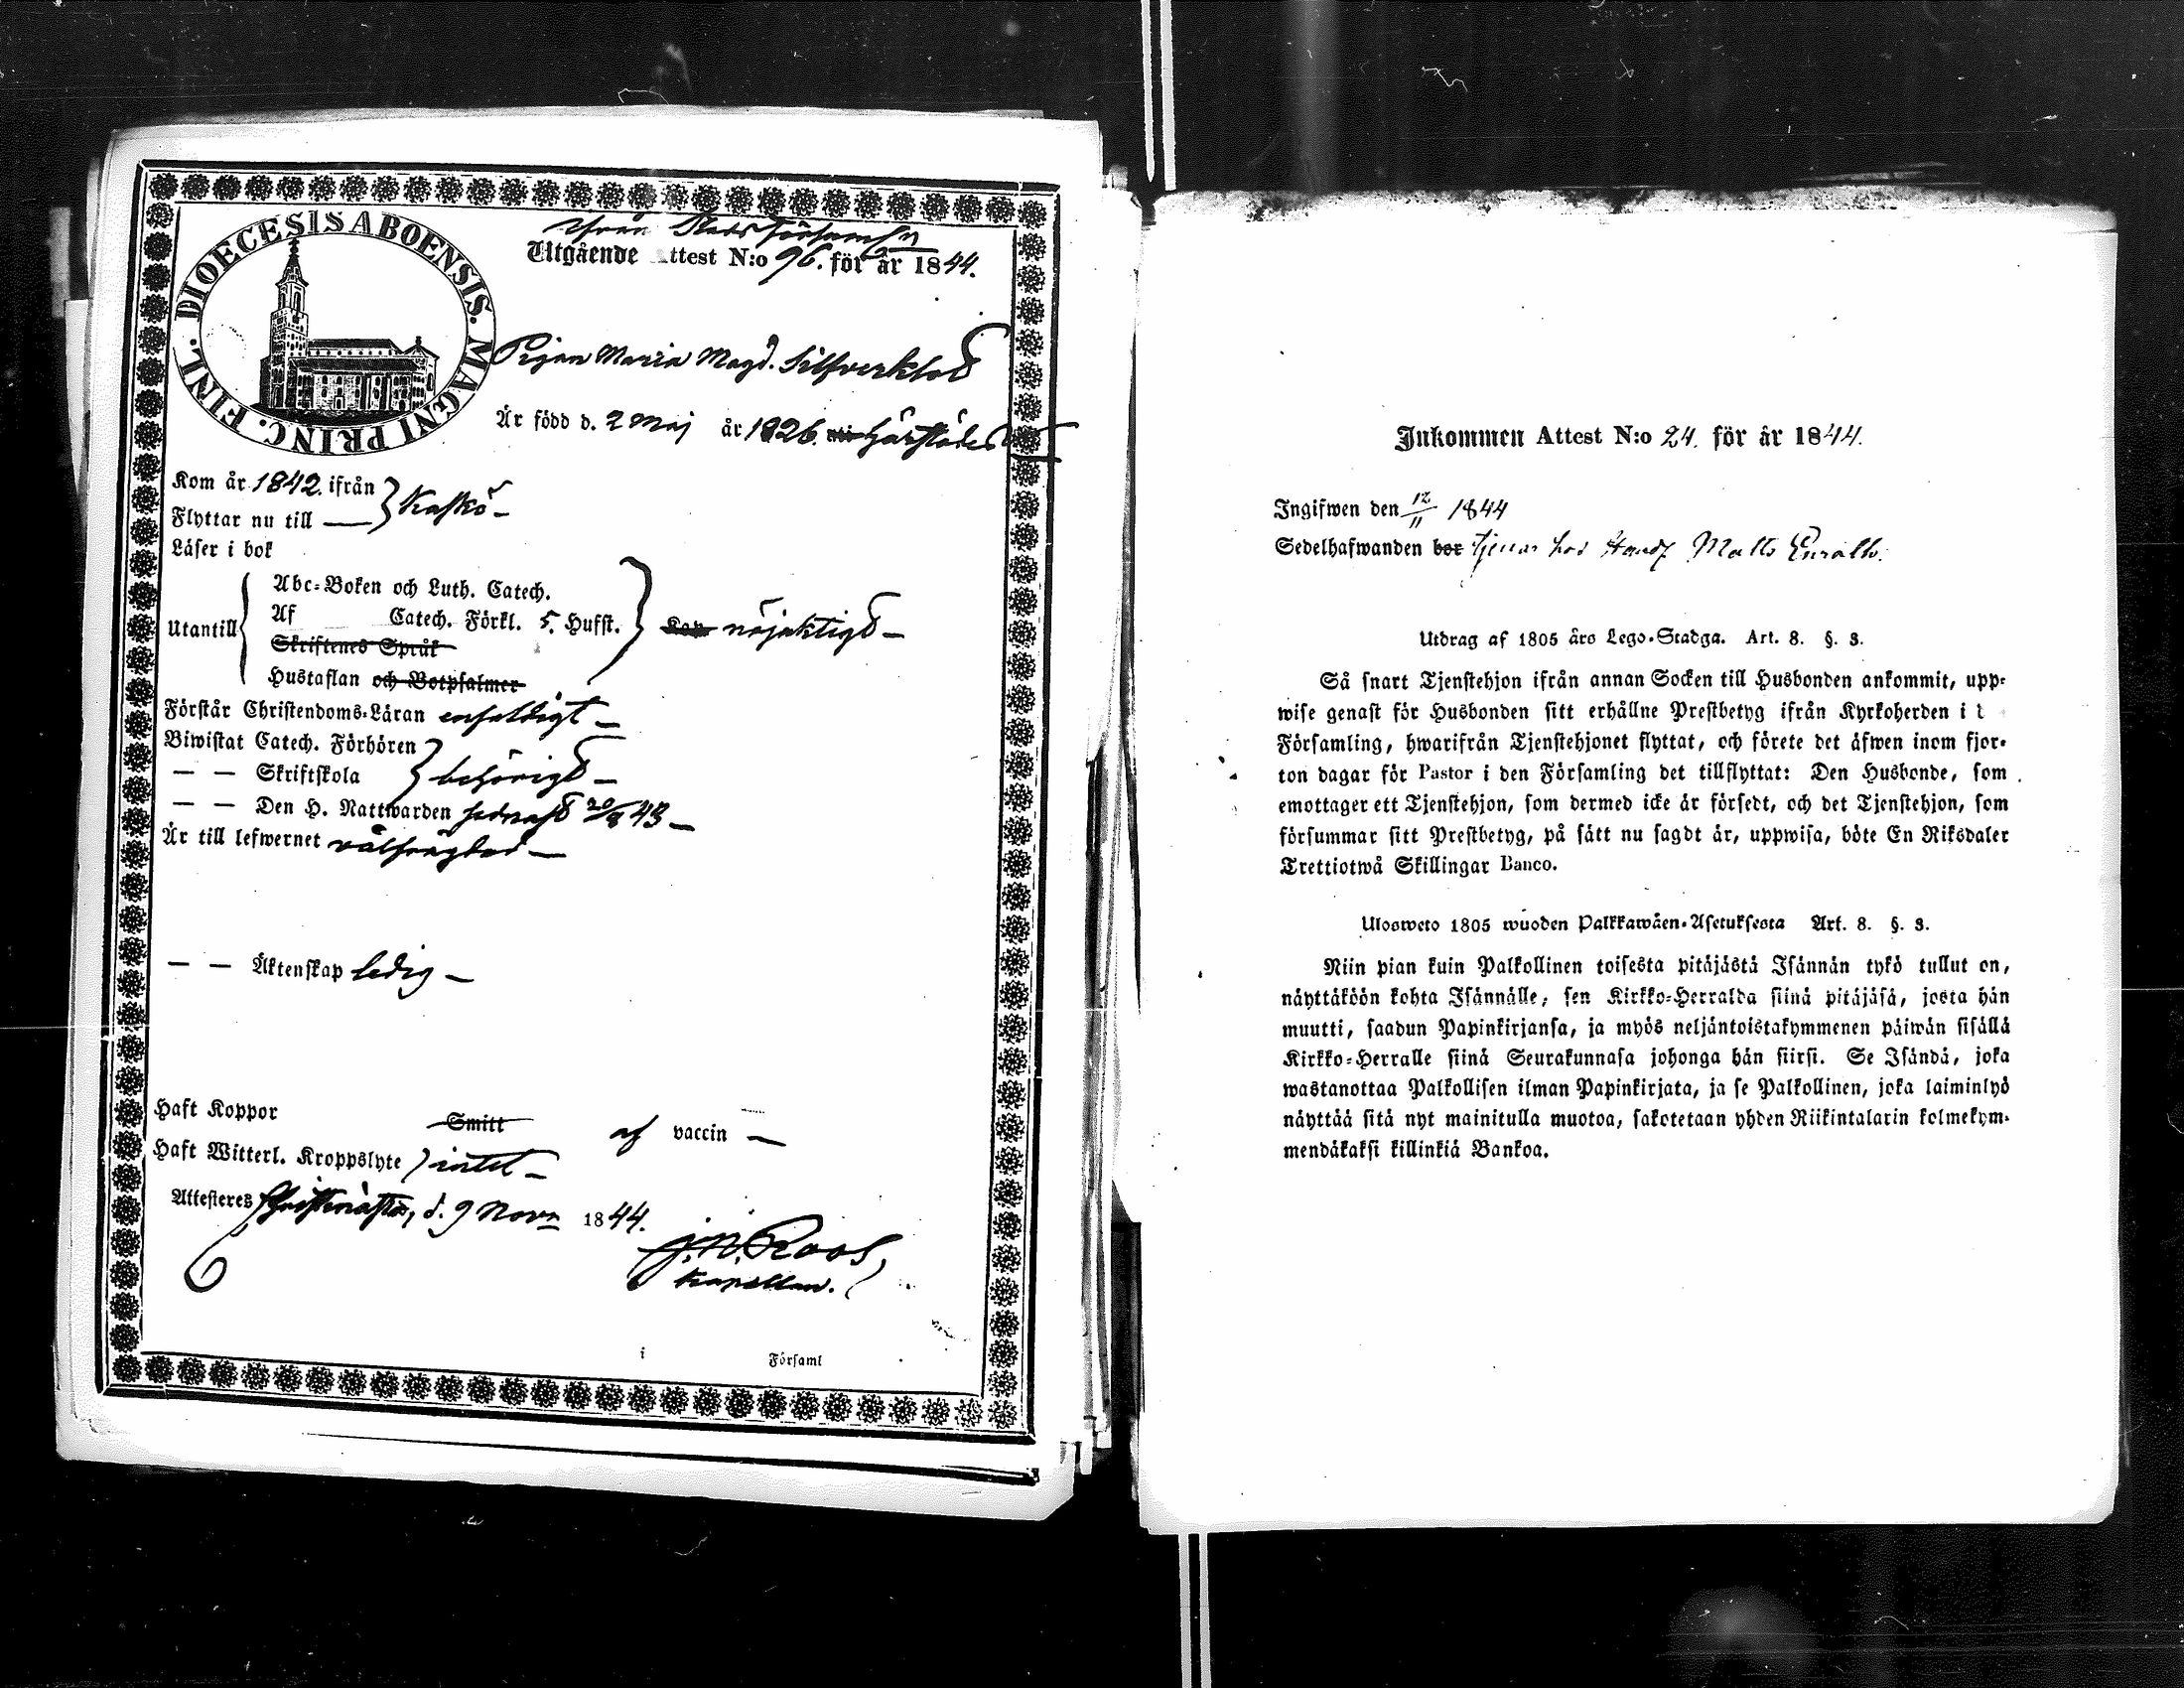 DIOECESIS ABOENSIS. MAGNI PRINC. FINL.
ifrån Stads församln
Utgående Attest N:o 96. för år 1844.
Pigan Maria Magd. Silfverklod
Är född d. 2 Maj år 1826. härstädes
Kom år 1842. ifrån } Kaskö –
Flyttar nu till —
Läser i bok
Utantill
Abc-Boken och Luth. Catech.
Af Catech. Förkl. 5. Hufst. nöjaktigt –
Skriftenes Språk
Hustaflan och Botpsalmer
Förstår Christendoms-Läran enfaldigt –
Biwistat Catech. Förhören
— — Skriftskola } behörigt –
— — Den H. Nattwarden sednast 20/8 43 –
Är till lefwernet välfrägdad –
— — Äktenskap ledig –
Haft Koppor Smitt af vaccin —
Haft Witterl. Kroppslyte intet –
Attesteres Christinæstad, d. 9 Novr 1844.
J. N. Roos,
Kapellan.
i Församl
Inkommen Attest N:o 24. för år 1844.
Ingifwen den 12/11 1844
Sedelhafwanden bor tjenar hos Handl Matts
Utdrag af 1805 års Lego-Stadga. Art. 8. §. 3.
Så snart Tjenstehjon ifrån annan Socken till Husbonden ankommit, upp-
wise genast för Husbonden sitt erhållne Prestbetyg ifrån Kyrkoherden i
Församling, hwarifrån Tjenstehjonet flyttat, och förete det äfwen inom fjor-
ton dagar för Pastor i den Församling det tillflyttat: Den Husbonde, som
emottager ett Tjenstehjon, som dermed icke är försedt, och det Tjenstehjon, som
försummar sitt Prestbetyg, på sätt nu sagdt är, uppwisa, böte En Riksdaler
Trettiotwå Skillingar Banco.
Ulosweto 1805 wuoden Palkkawäen-Asetuksesta Art. 8. §. 3.
Niin pian kuin Palkollinen toisesta pitäjästä Isännän tykö tullut on,
näyttäköön kohta Isännälle, sen Kirkko-Herralda siinä pitäjäsä, josta hän
muutti, saadun Papinkirjansa, ja myös neljäntoistakymmenen päiwän sisällä
Kirkko-Herralle siinä Seurakunnasa johonga hän siirsi. Se Isändä, joka
wastanottaa Palkollisen ilman Papinkirjata, ja se Palkollinen, joka laiminlyö
näyttää sitä nyt mainitulla muotoa, sakotetaan yhden Riikintalarin kolmekym-
mendäkaksi killinkiä Bankoa.